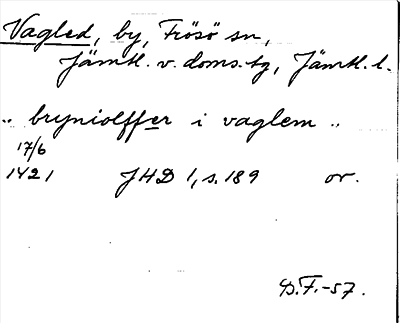 Vagled, by, Frösö sn,
Jämtl. v. doms. tg, Jämtl. l.
" bryniolffer i vaglem "
17/6
1421 JHD 1, s. 189 or.
D.F.-57.